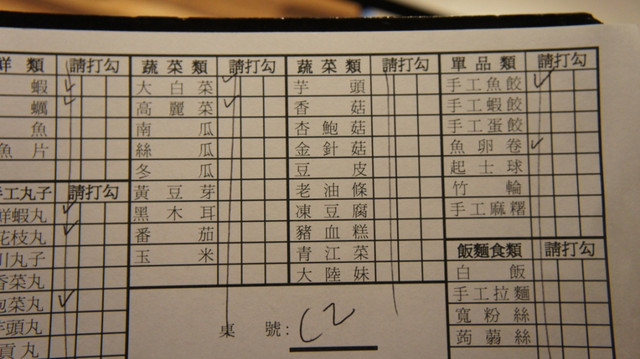 鮮 類 請打勾
蝦
蠣
魚
魚 片
手工丸子 請打勾
鮮蝦丸
花枝丸
丸子
香菜丸
泡菜丸
芋頭丸
貢丸
蔬菜類 請打勾
大白菜
高麗菜
南瓜
絲瓜
冬瓜
黃豆芽
黑木耳
番茄
玉米
蔬菜類 請打勾
芋頭
香菇
杏鮑菇
金針菇
豆皮
老油條
凍豆腐
豬血糕
青江菜
大陸妹
單品類 請打勾
手工魚餃
手工蝦餃
手工蛋餃
魚卵卷
起士球
竹輪
手工麻糬
飯麵食類 請打勾
白飯
手工拉麵
寬粉絲
蒟蒻絲
桌 號: C2